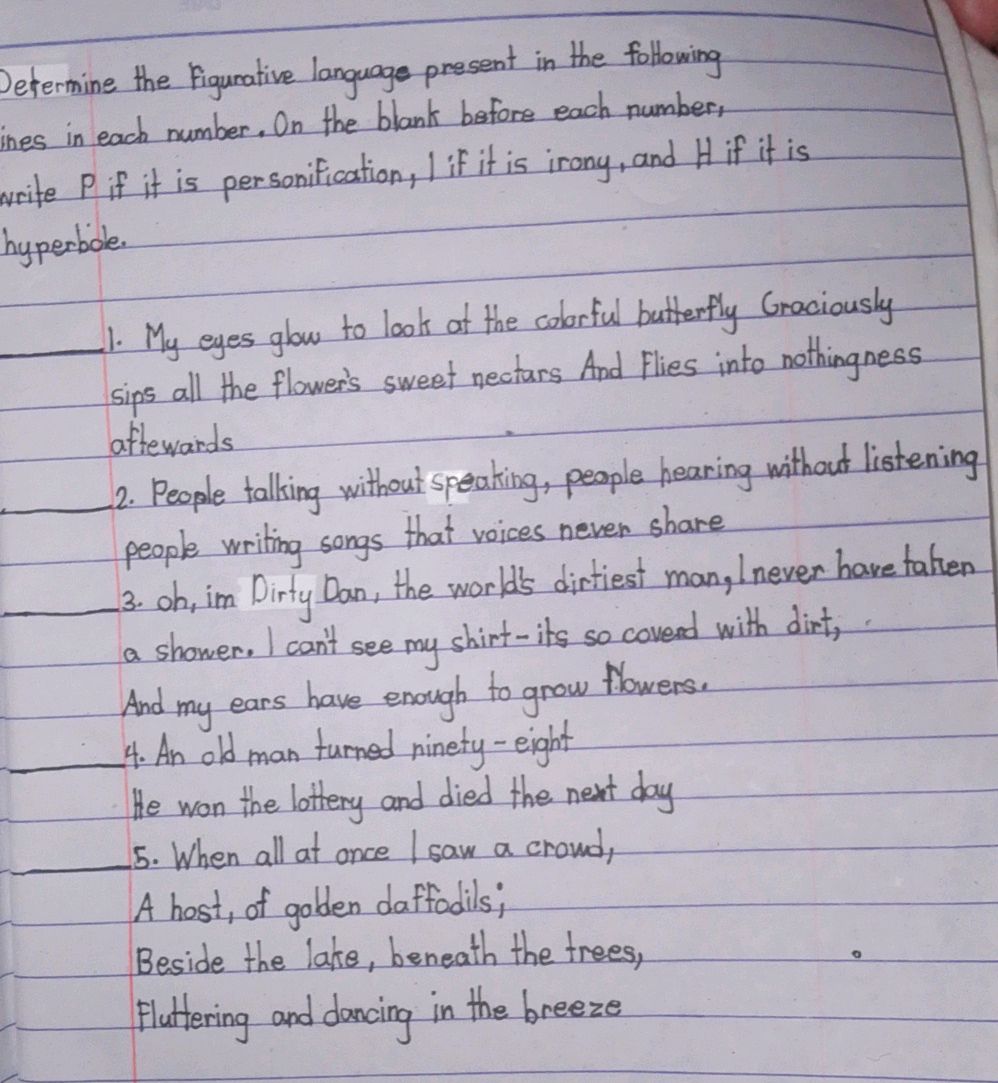 Determine the Figurative language present in the following
ines in each number. On the blank before each number,
write P if it is personification, I if it is irony, and H if it is
hyperbole.
1. My eyes glow to look at the colorful butterfly Graciously
sips all the flower's sweet nectars And Flies into nothingness
aftewards
2. People talking without speaking, people hearing without listening
people writing songs that voices never share
3. oh, im Dirty Dan, the world's dirtiest man, I never have taken
a shower. I can't see my shirt-its so coverd with dirt,
And my ears have enough to grow flowers.
4. An old man turned ninety-eight
He won the lottery and died the next day
5. When all at once I saw a crowd,
A host, of golden daffodils;
Beside the lake, beneath the trees,
Fluttering and dancing in the breeze